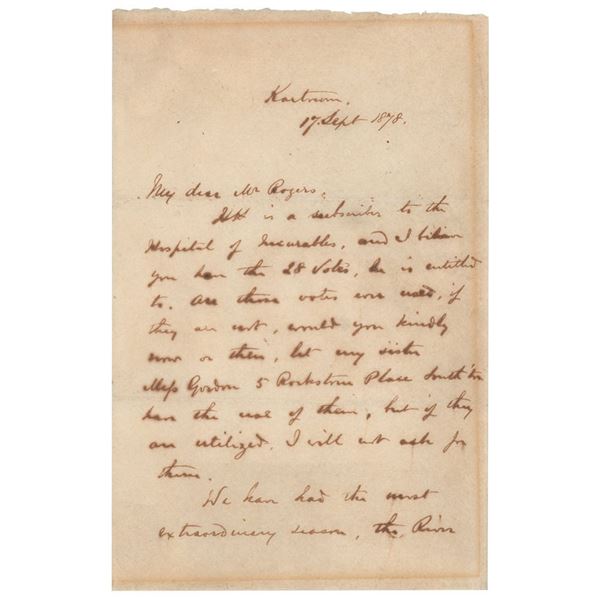 Kartoum.
17. Sept 1878.
My dear Mr Rogers,
HH is a subscriber to the
Hospital of Incurables, and I believe
you have the 28 Votes, he is entitled
to. are those votes ever used, if
they are not, would you kindly
now or then, let my sister
Miss Gordon 5 Rockstone Place South'ton
have the use of them, but if they
are utilized, I will not ask for
them.
We have had the most
extraordinary season, the River